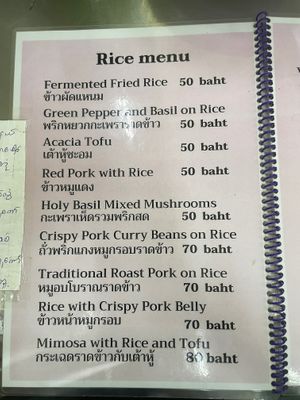 Rice menu
Fermented Fried Rice 50 baht
ข้าวผัดแหนม
Green Pepper and Basil on Rice
พริกหยวกกะเพราราดข้าว 50 baht
Acacia Tofu 50 baht
เต้าหู้ชะอม
Red Pork with Rice 50 baht
ข้าวหมูแดง
Holy Basil Mixed Mushrooms
กะเพราเห็ดรวมพริกสด 50 baht
Crispy Pork Curry Beans on Rice
ถั่วพริกแกงหมูกรอบราดข้าว 70 baht
Traditional Roast Pork on Rice
หมูอบโบราณราดข้าว 70 baht
Rice with Crispy Pork Belly
ข้าวหน้าหมูกรอบ 70 baht
Mimosa with Rice and Tofu
กระเฉดราดข้าวกับเต้าหู้ 80 baht